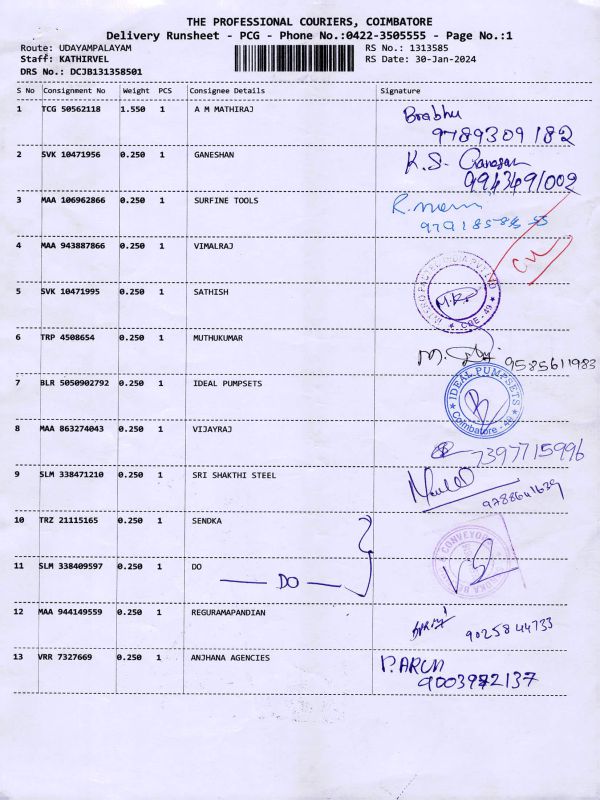 THE PROFESSIONAL COURIERS, COIMBATORE
Delivery Runsheet - PCG - Phone No.:0422-3505555 - Page No.:1
Route: UDAYAMPALAYAM RS No.: 1313585
Staff: KATHIRVEL RS Date: 30-Jan-2024
DRS No.: DCJB131358501
S No Consignment No Weight PCS Consignee Details Signature
1 TCG 50562118 1.550 1 A M MATHIRAJ Brabhu
9789309182
2 SVK 10471956 0.250 1 GANESHAN K.S. Ganesan
9943491002
3 MAA 106962866 0.250 1 SURFINE TOOLS
4 MAA 943887866 0.250 1 VIMALRAJ
5 SVK 10471995 0.250 1 SATHISH
CBE - 49
6 TRP 4508654 0.250 1 MUTHUKUMAR 9585611983
7 BLR 5050902792 0.250 1 IDEAL PUMPSETS IDEAL PUMPSETS
Coimbatore - 49
8 MAA 863274043 0.250 1 VIJAYRAJ 7397715996
9 SLM 338471210 0.250 1 SRI SHAKTHI STEEL 9788641639
10 TRZ 21115165 0.250 1 SENDKA
11 SLM 338409597 0.250 1 DO
DO
12 MAA 944149559 0.250 1 REGURAMAPANDIAN 9025844733
13 VRR 7327669 0.250 1 ANJHANA AGENCIES P. ARUN
9003972137